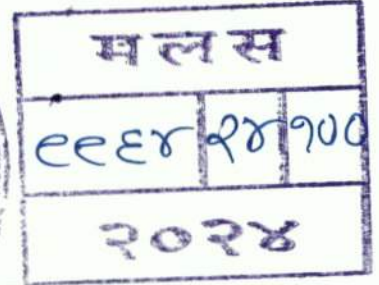 मलस
९९६४ २४ १००
२०२४